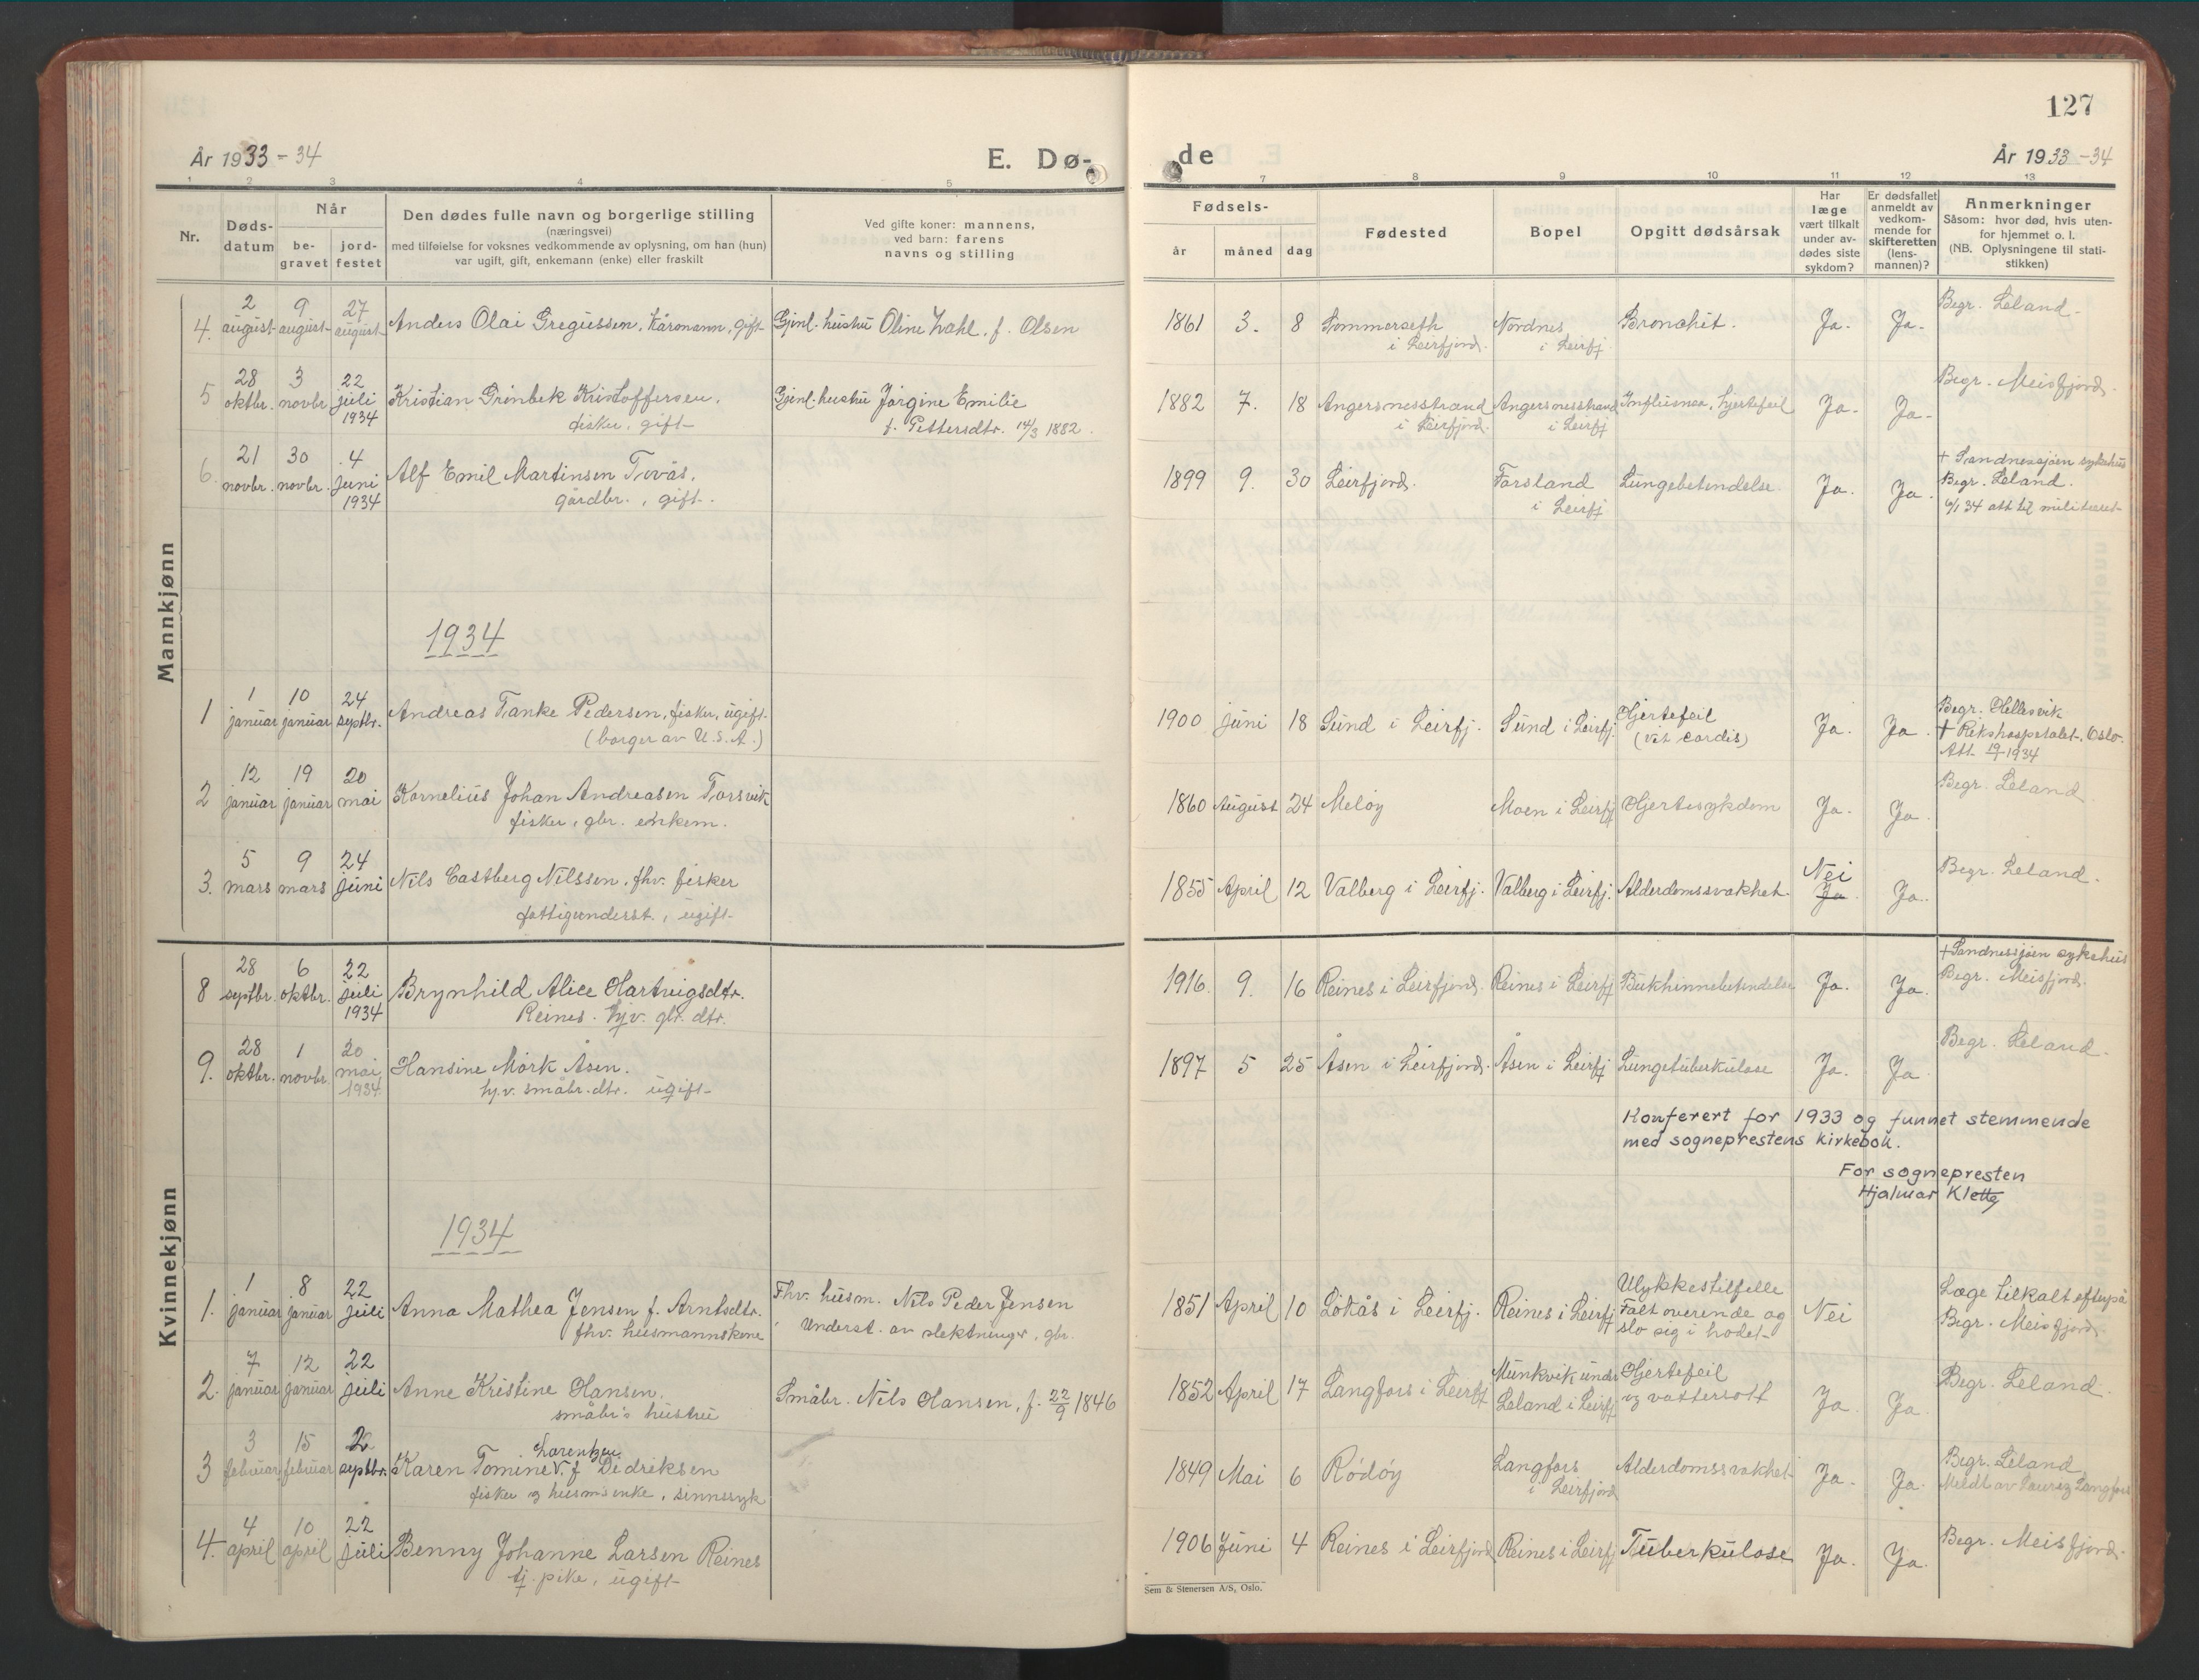 127
År 1933-34
E. Dø-
de
År 1933-34
1 2 3 4 5
7 8 9 10 11 12 13
Nr.
Døds-
datum
Når
be-
gravet
jord-
festet
Den dødes fulle navn og borgerlige stilling
(næringsvei)
med tilføielse for voksnes vedkommende av oplysning, om han (hun)
var ugift, gift, enkemann (enke) eller fraskilt
Ved gifte koner: mannens,
ved barn: farens
navns og stilling
Fødsels-
år måned dag
Fødested
Bopel
Opgitt dødsårsak
Har
læge
vært tilkalt
under av-
dødes siste
sykdom?
Er dødsfallet
anmeldt av
vedkom-
mende for
skifteretten
(lens-
mannen)?
Anmerkninger
Såsom: hvor død, hvis uten-
for hjemmet o. l.
(NB. Oplysningene til stati-
stikken)
Mannkjønn
2 9 27 Begr. Leland.
4. august august august Anders Olai Gregussen, Kårmann, gift Gjenl. hustru Oline Zahl, f. Olsen 1861 3. 8 Sommerseth Nordnes Bronchit. Ja. Ja.
i Leirfjord. i Leirfj
28 3 22 Begr. Meisfjord.
5 oktbr. novbr juli Kristian Grönbek Kristoffersen, Gjenl. hustru Jörgine Emilie 1882 7. 18 Angersnesstrand Angersnesstrand Influensa, hjertefeil Ja. Ja.
1934 fisker, gift f. Pettersdtr. 14/3 1882. i Leirfjord. i Leirfj
21 30 4 + Sandnessjöen sykehus
6. novbr. novbr. juni Alf Emil Martinsen Tovås, 1899 9. 30 Leirfjord. Forsland Lungebetendelse. Ja. Ja. Begr. Leland.
1934 gårdbr., gift. i Leirfj 6/1 34 att til militæret
1934
1 10 24 Begr. Hellesvik
1 januar januar septbr. Andreas Tanke Pedersen, fisker, ugift. 1900 juni 18 Sund i Leirfj. Sund i Leirfj. Hjertefeil Ja. Ja. + Rikshospitalet, Oslo.
(borger av U.S.A.) (vit cordis) Att. 19/ 1934
12 19 20 Begr. Leland
2 januar januar mai Kornelius Johan Andreasen Forsvik 1860 August 24 Meløy Moen i Leirfj Hjertesykdom Ja. Ja
fisker, gbr. enkem.
5 9 24 Nei Begr. Leland.
3. mars mars juni Nils Castberg Nilssen, fhv. fisker 1855 April 12 Valberg i Leirfj. Valberg i Leirfj. Alderdomssvakhet Ja Ja.
fattigunderst., ugift
Kvinnekjønn
28 6 22 + Sandnessjøen sykehus
8 septbr. oktbr. juli Brynhild Alice Hartvigsdtr. 1916. 9. 16 Reines i Leirfjord. Reines i Leirfj Bukhinnebetendelse Ja. Ja. Begr. Meisfjord.
1934 Reines. hjv. gbr. dtr.
28 1 20 Begr. Leland.
9. oktbr. novbr. mai Hansine Mörk Åsen. 1897 5 25 Åsen i Leirfjord. Åsen i Leirfj Lungetuberkulose Ja. Ja
1934 hj.v. småbr. dtr. ugift
Konferert for 1933 og funnet stemmende
med sogneprestens kirkebok.
For sognepresten
Hjalmar Klette
1934
1 8 22 Fhv. husm. Nils Peder Jensen Ulykkestilfelle Læge tilkalt efterpå
1. januar januar juli Anna Mathea Jensen f. Arntsdtr. 1851 April 10 Lökås i Leirfj. Reines i Leirfj Falt overende og Nei Begr. Meisfjord
fhv. husmannskone Underst. av slektninger, gbr. slo sig i hodet
7 12 22 Munkvik under Hjertefeil Begr. Leland.
2. januar januar juli Anne Kristine Hansen. Småbr. Nils Hansen, f. 22/9 1846 1852 April 17 Langfors i Leirfj Leland i Leirfj og vattersott Ja. Ja.
småbr's hustru
3 15 2 Lorentzen Begr. Leland
3 februar februar septbr. Karen Tomine V. f Didriksen 1849 Mai 6 Rödöy Langfors Alderdomssvakhet Ja. Ja. Meldt av Langfors
fisker og husm's enke, sinnssyk i Leirfjord
4 10 22 Begr. Meisfjord.
4. april april juli Benny Johanne Larsen Reines 1906 Juni 4 Reines i Leirfjord Reines i Leirfj Tuberkulose Ja. Ja.
tj. pike, ugift
Sem & Stenersen A/S, Oslo.